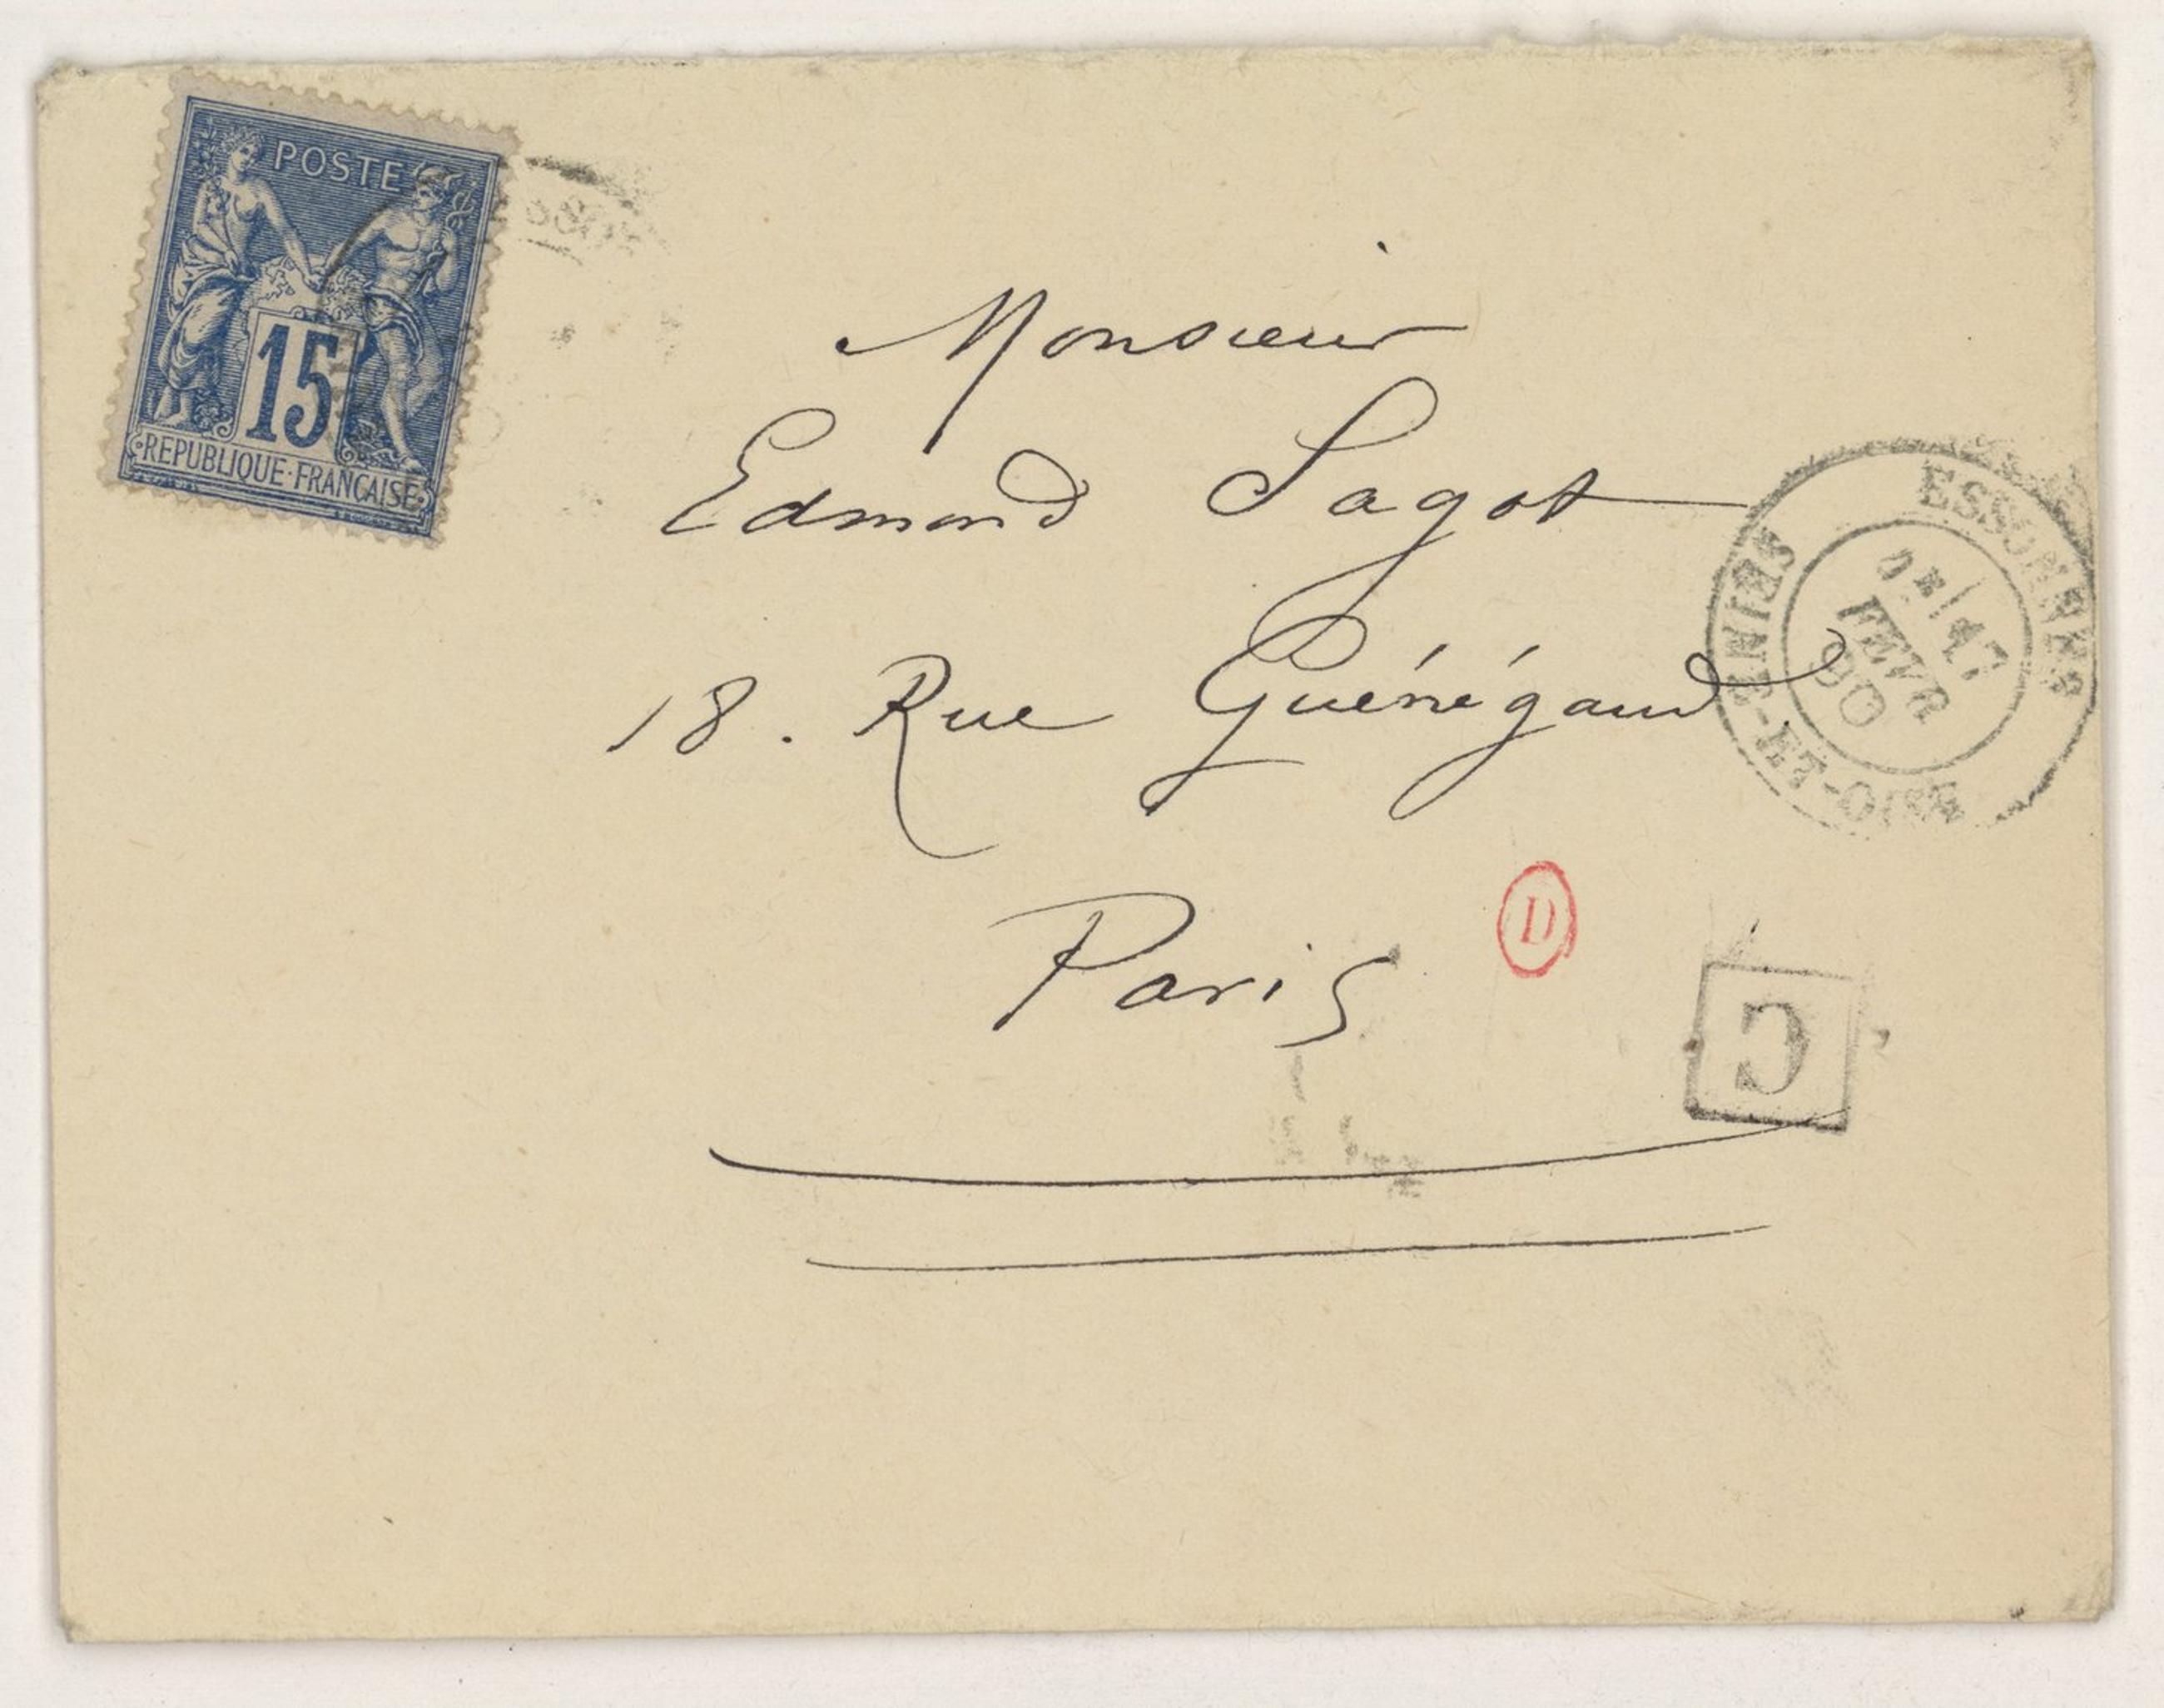 POSTE
15
REPUBLIQUE·FRANÇAISE
Monsieur
Edmond Sagot
18. Rue Guénégaud.
Paris
ESSONNES
FEVR
90
SEINE-ET-OISE
D
C